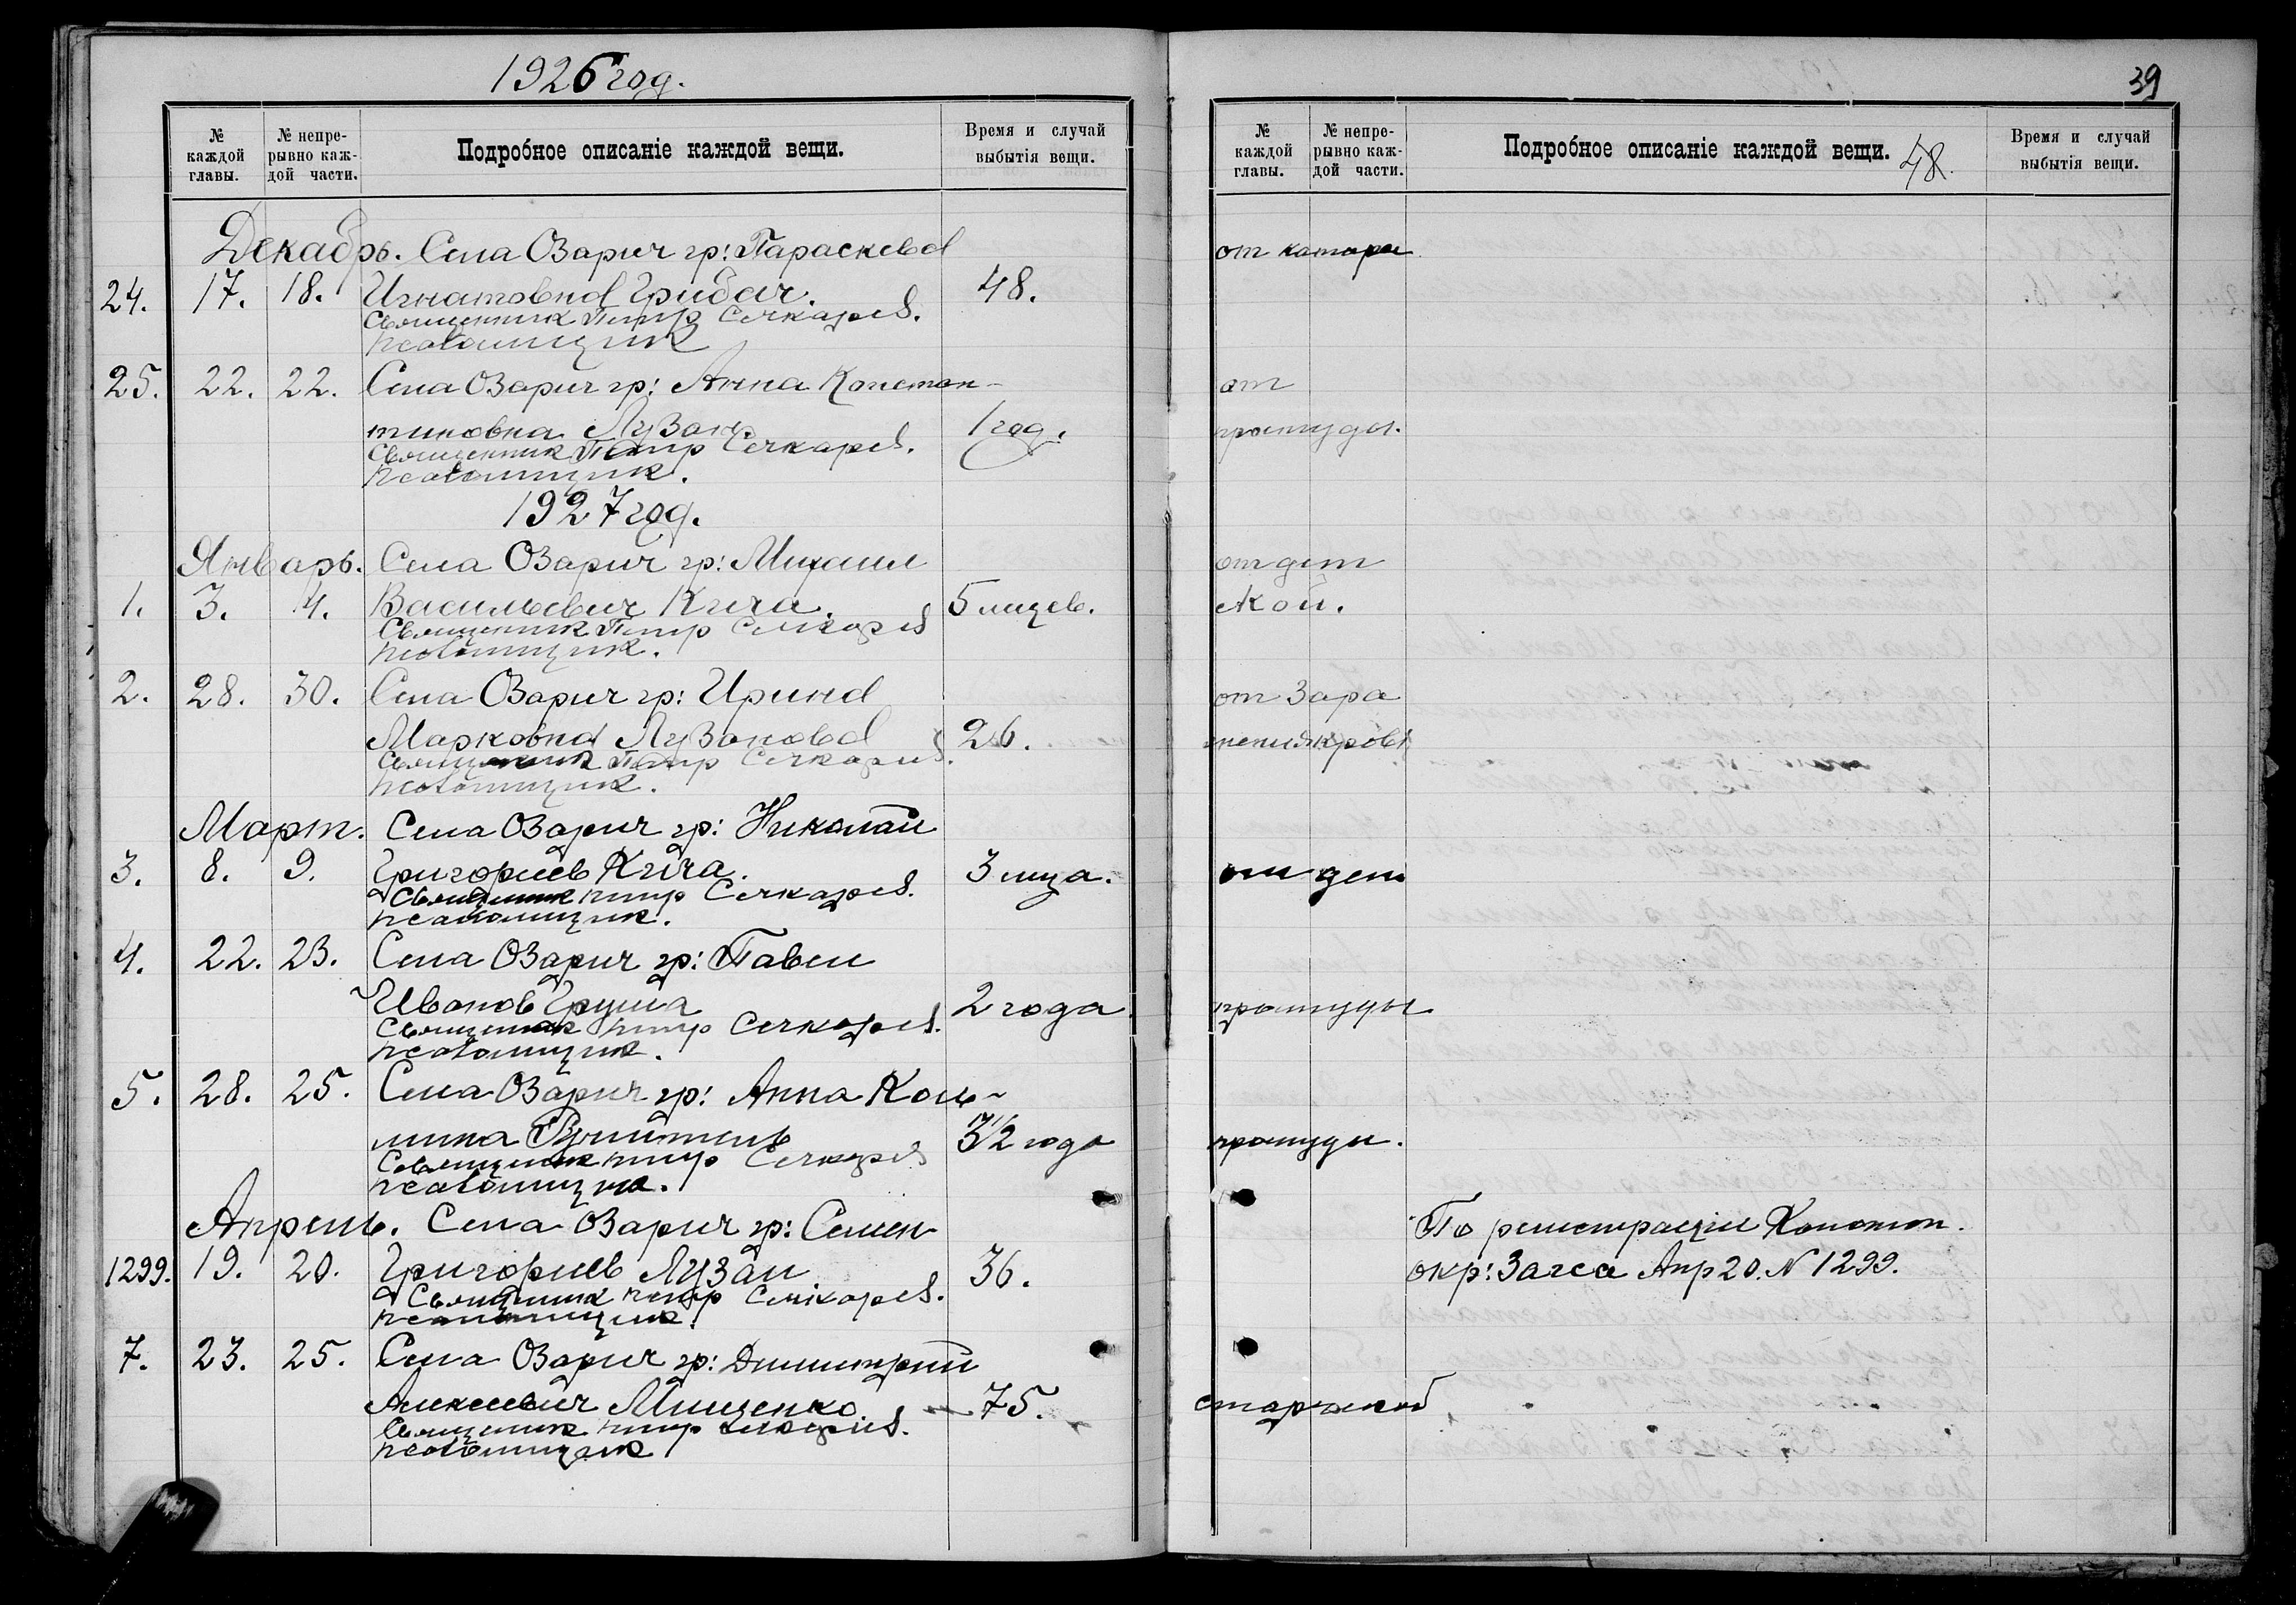 1926 год.
№ каждой главы.
№ непрерывно каждой части.
Подробное описаніе каждой вещи.
Время и случай выбытія вещи.
Декабрь. Села Озарич гр: Параскева
24. 17. 18. Игнатовна Грибач. 48.
Священник Петр Сечкарев.
псаломщик
25. 22. 22. Села Озарич гр: Анна Констан-
тиновна Лузан 1 год.
Священник Петр Сечкарев.
псаломщик.
1927 год.
Январь. Села Озарич гр: Михаил
1. 3. 4. Васильевич Кича. 5 мцев.
Священник Петр Сечкарев
псаломщик.
2. 28. 30. Села Озарич гр: Ирина
Марковна Лузанова 26.
Священник Петр Сечкарев.
псаломщик.
Март. Села Озарич гр: Николай
3. 8. 9. Григориев Кича. 3 мца.
Священник петр Сечкарев.
псаломщик.
4. 22. 23. Села Озарич гр: Павел
Иванов Груша 2 года
Священник петр Сечкарев.
псаломщик.
5. 28. 25. Села Озарич гр: Анна Козь-
мина 3 1/2 года
Священник петр Сечкарев
псаломщик.
Апрель. Села Озарич гр: Семен
1299. 19. 20. Григориев Лузан. 36.
Священник петр Сечкарев.
псаломщик.
7. 23. 25. Села Озарич гр: Димитрий
Алексеевич Мищенко 75.
Священник петр Сечкарев.
псаломщик
39
№ каждой главы.
№ непрерывно каждой части.
Подробное описаніе каждой вещи. 48.
Время и случай выбытія вещи.
от катара
от
простуды.
от дет
ской.
от зара
жения крови
от дет
простуды
простуды.
По регистрации Конотоп.
окр: Загса Апр 20. N 1299.
старческой